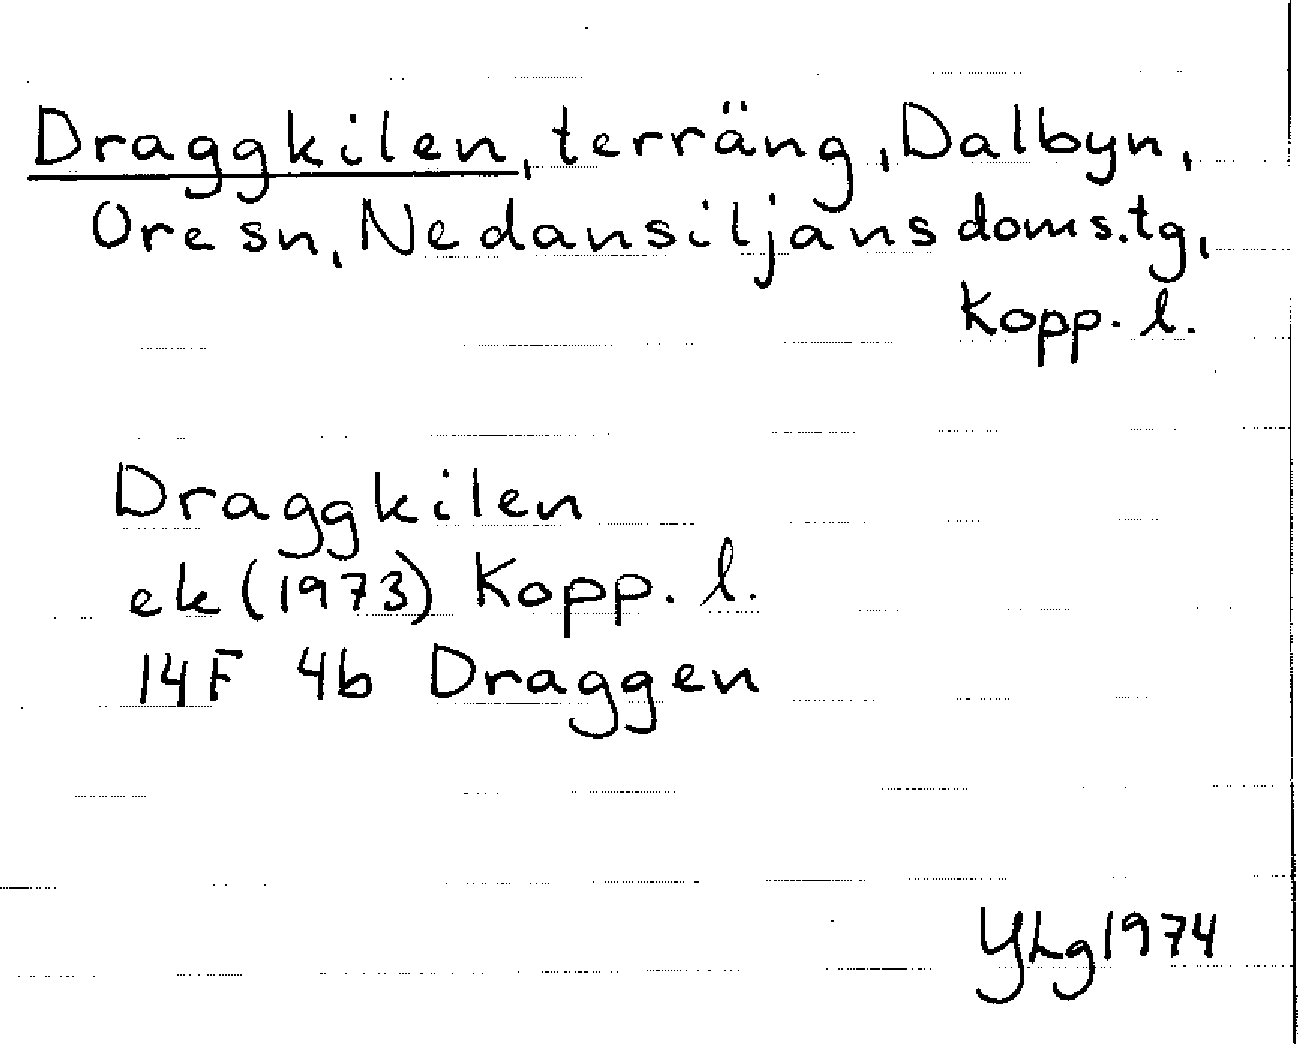 Draggkilen, terräng, Dalbyn,
Ore sn, Nedansiljans doms.tg,
Kopp. l.
Draggkilen
ek (1973) Kopp. l.
14F 4b Draggen
YLg 1974